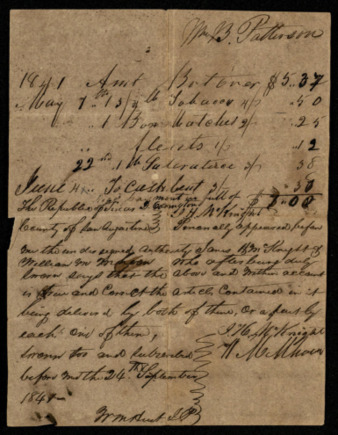 Wm B. Patterson
1841 Amt Brot over $5.37
May 1 " 1 3/4 lb Tobacco 4/ .50
" 1 Box Matches 2/ .25
" flints 1/ 12
22nd 1 lb Salaratus 3/ 38
June 4 To Cash lent 3/ .38
$8.00
The Republic of Texas J H McKnight
County of San Augustine Personally appeared before
me the undersigned Authority James H McKnight &
William M who after being duly
sworn says that the above and within account
is True and Correct the articles Contained in it
being delivered by both of them, or a part by
each one of them,
J H McKnight
sworn too and subscribed
before me the 24th September
1841
Wm Hurt J P